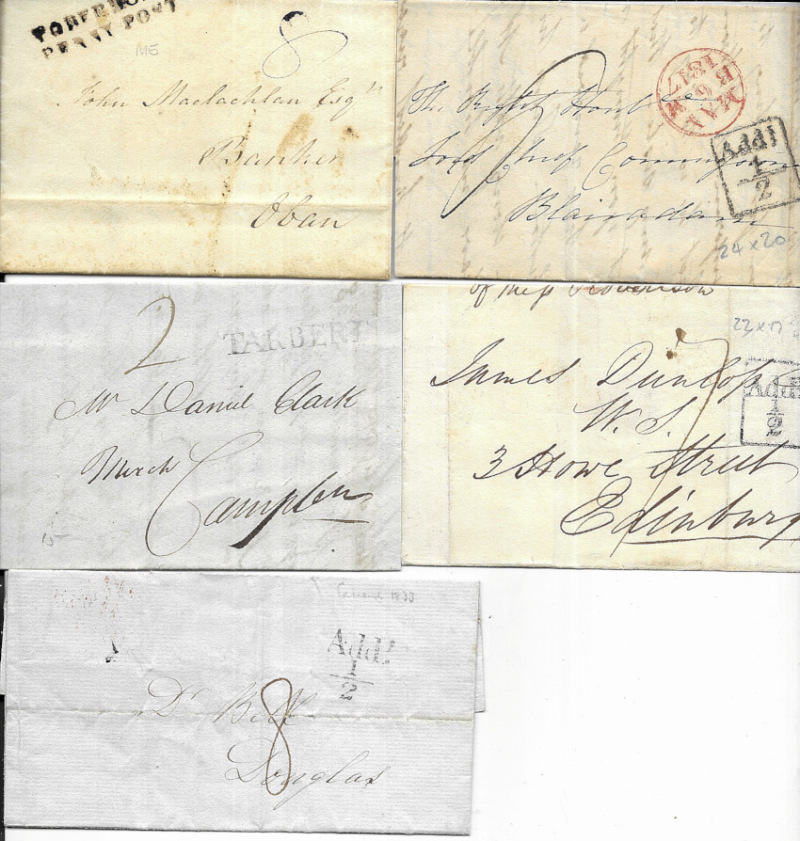 PENNY POST
ME
8
John Maclachlan Esqr
Banker
Oban
MAY
B 1817
The Right Honble
Lord Chief Commissioner
Blairadam
Addl
1/2
24 x 20
2
TARBERT
Mr Daniel Clark
Merch
Campbn
of Miss Robertson
22 x 17
James Dunlop
W. S.
3 Howe Street
Edinburg
7
Addl
1/2
1833
Addl
1/2
Dr Bell
8
Douglas